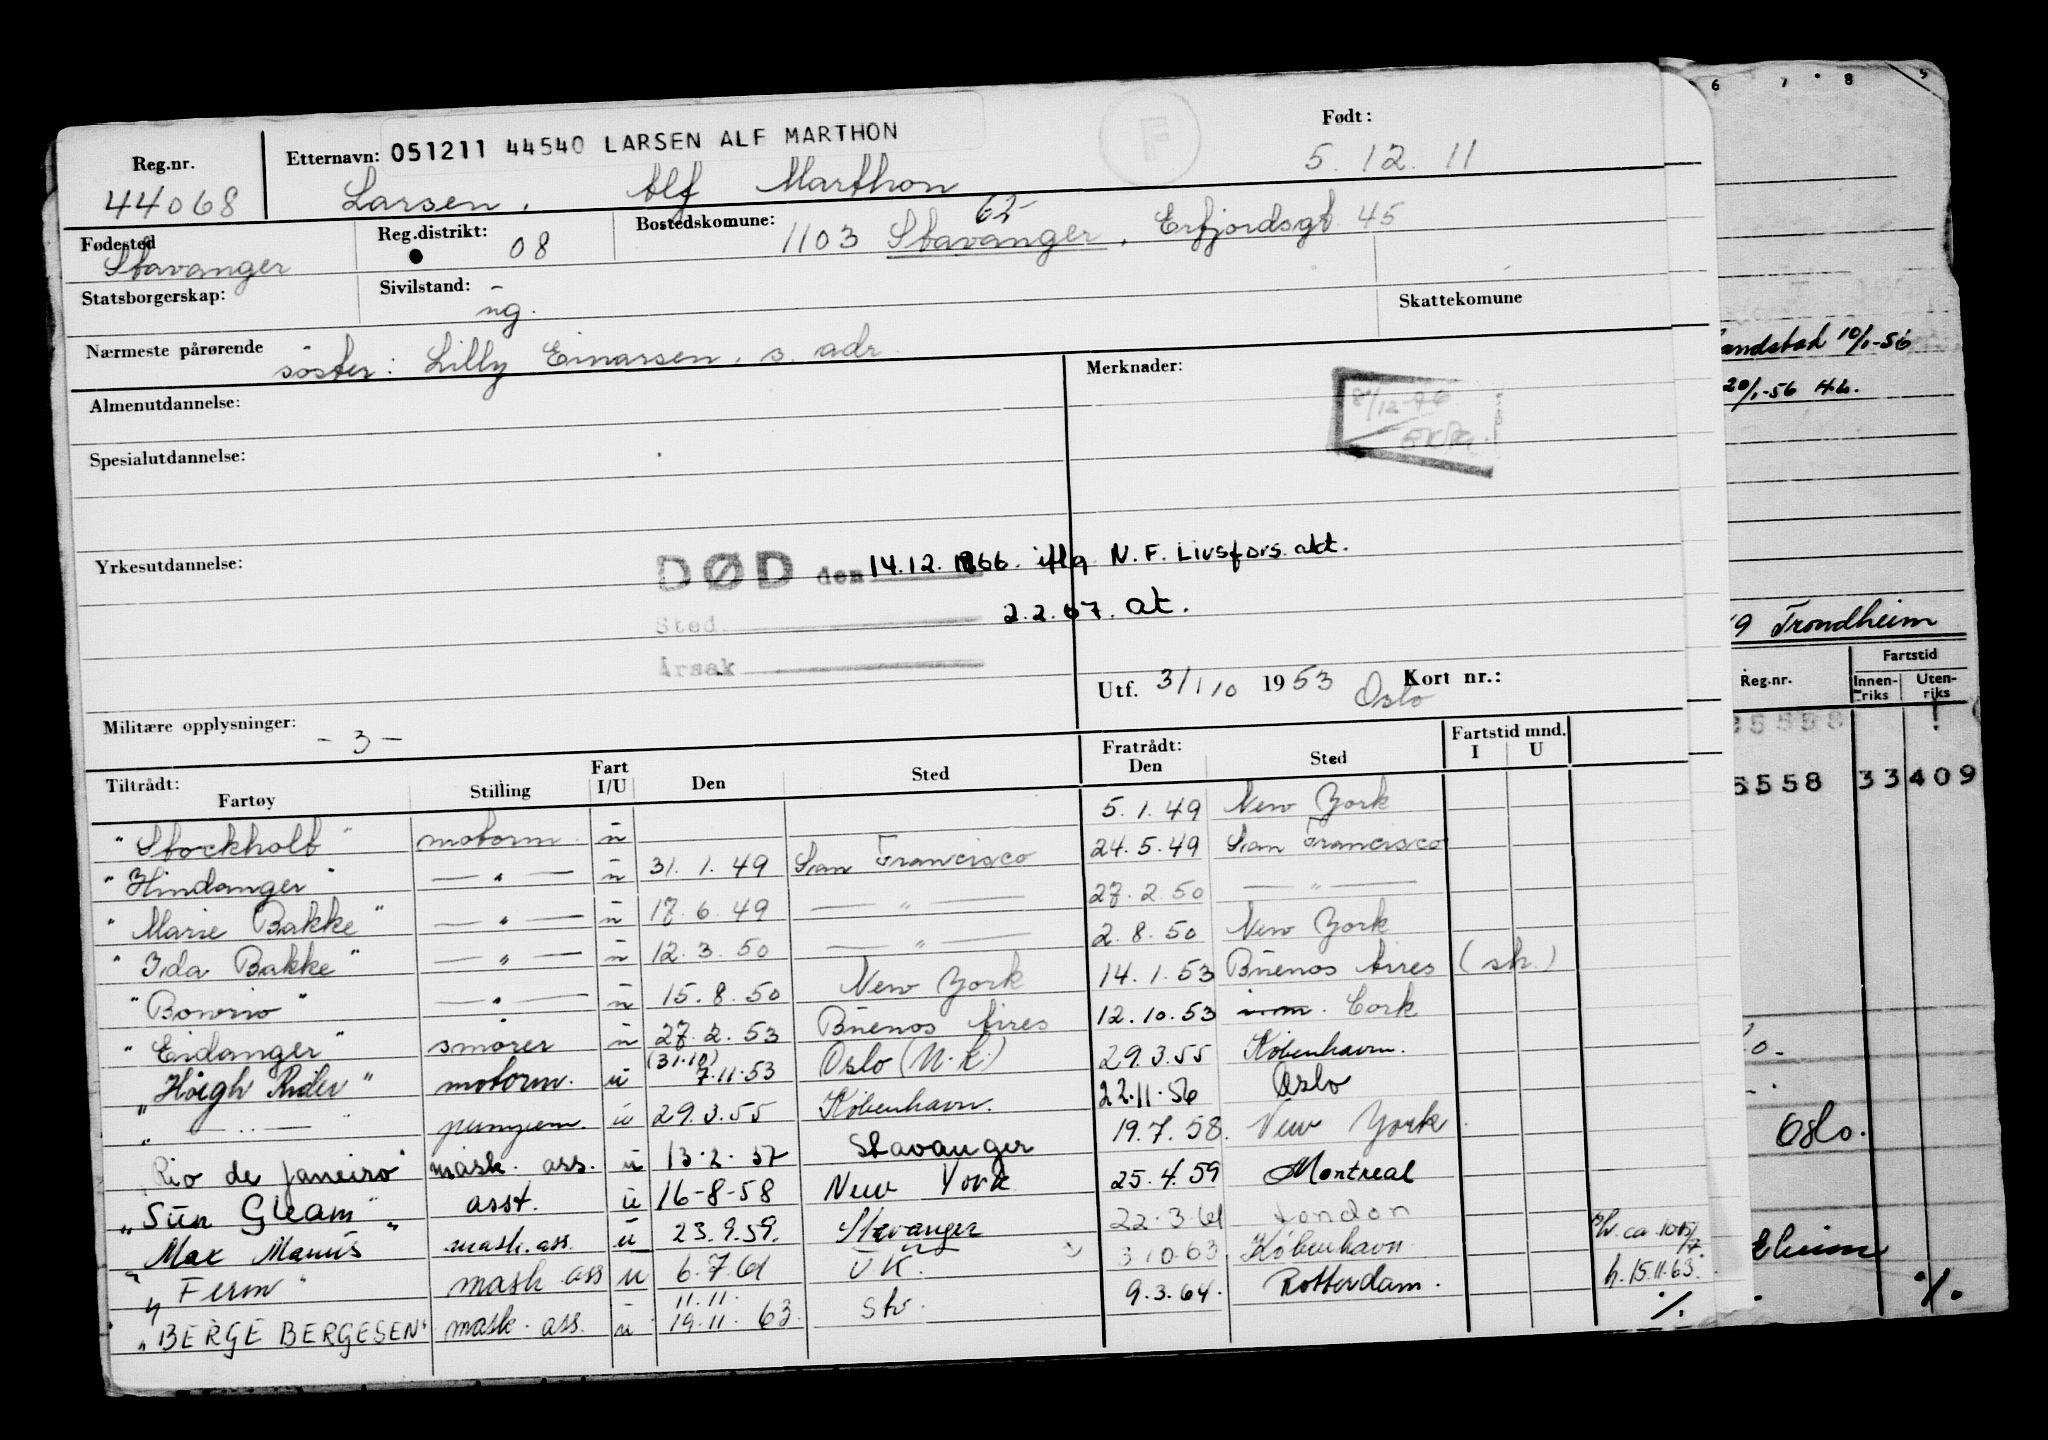 Reg.nr. 44068
Etternavn: 051211 44540 LARSEN ALF MARTHON
Larsen, Alf Marthon
F
Født: 5.12.11
Fødested Stavanger
Reg.distrikt: 08
Bostedskomune: 1103 Stavanger, Erfjordsgt. 45
62
Statsborgerskap:
Sivilstand: ug.
Skattekomune
Nærmeste pårørende søster: Lilly Einarsen, s. adr.
Almenutdannelse:
Merknader:
Spesialutdannelse:
Yrkesutdannelse:
DØD den 14.12.1966. iflg. N.F. Livsfors. akt.
Sted 2.2.67. at.
Årsak
Utf. 31/10 1953 Oslo Kort nr.:
Militære opplysninger: - 3 -
Tiltrådt: Fartøy Stilling Fart I/U Den Sted Fratrådt: Den Sted Fartstid mnd. I U
"Stockholt" motorm. u 5.1.49 New York
"Hindanger" — " — u 31.1.49 San Francisco 24.5.49 San Francisco
"Marie Bakke" — " — u 17.6.49 — " — 27.2.50 — " —
"Ida Bakke" — " — u 12.3.50 — " — 2.8.50 New York
"Bowrio" — " — u 15.8.50 New York 14.1.53 Buenos Aires (sk.)
"Eidanger" smører u 27.2.53 Buenos Aires 12.10.53 Cork
"Høegh Rider" motorm. u (31.10) 7.11.53 Oslo (N.k.) 29.3.55 København.
" — " — " pumpem. u 29.3.55 København. 22.11.56 Oslo
"Rio de Janeiro" mask. ass. u 13.2.57 Stavanger 19.7.58. New York
"Sun Gleam" asst. u 16-8-58 New York 25.4.59 Montreal
"Max Manus" mask. ass. u 23.9.59. Stavanger 22.3.61 London
"Ferm" mask ass u 6.7.61 UK. 3.10.63 København.
"BERGE BERGESEN" mask. ass. u 11.11. 19.11.63. Stv. 9.3.64. Rotterdam.
h. 15.11.63.
%
6 7 8
10/1-56
20/1-56 H.L.
Trondheim
Reg.nr. Fartstid
Innen-riks Uten-riks
5558 33 409
Oslo.
%.